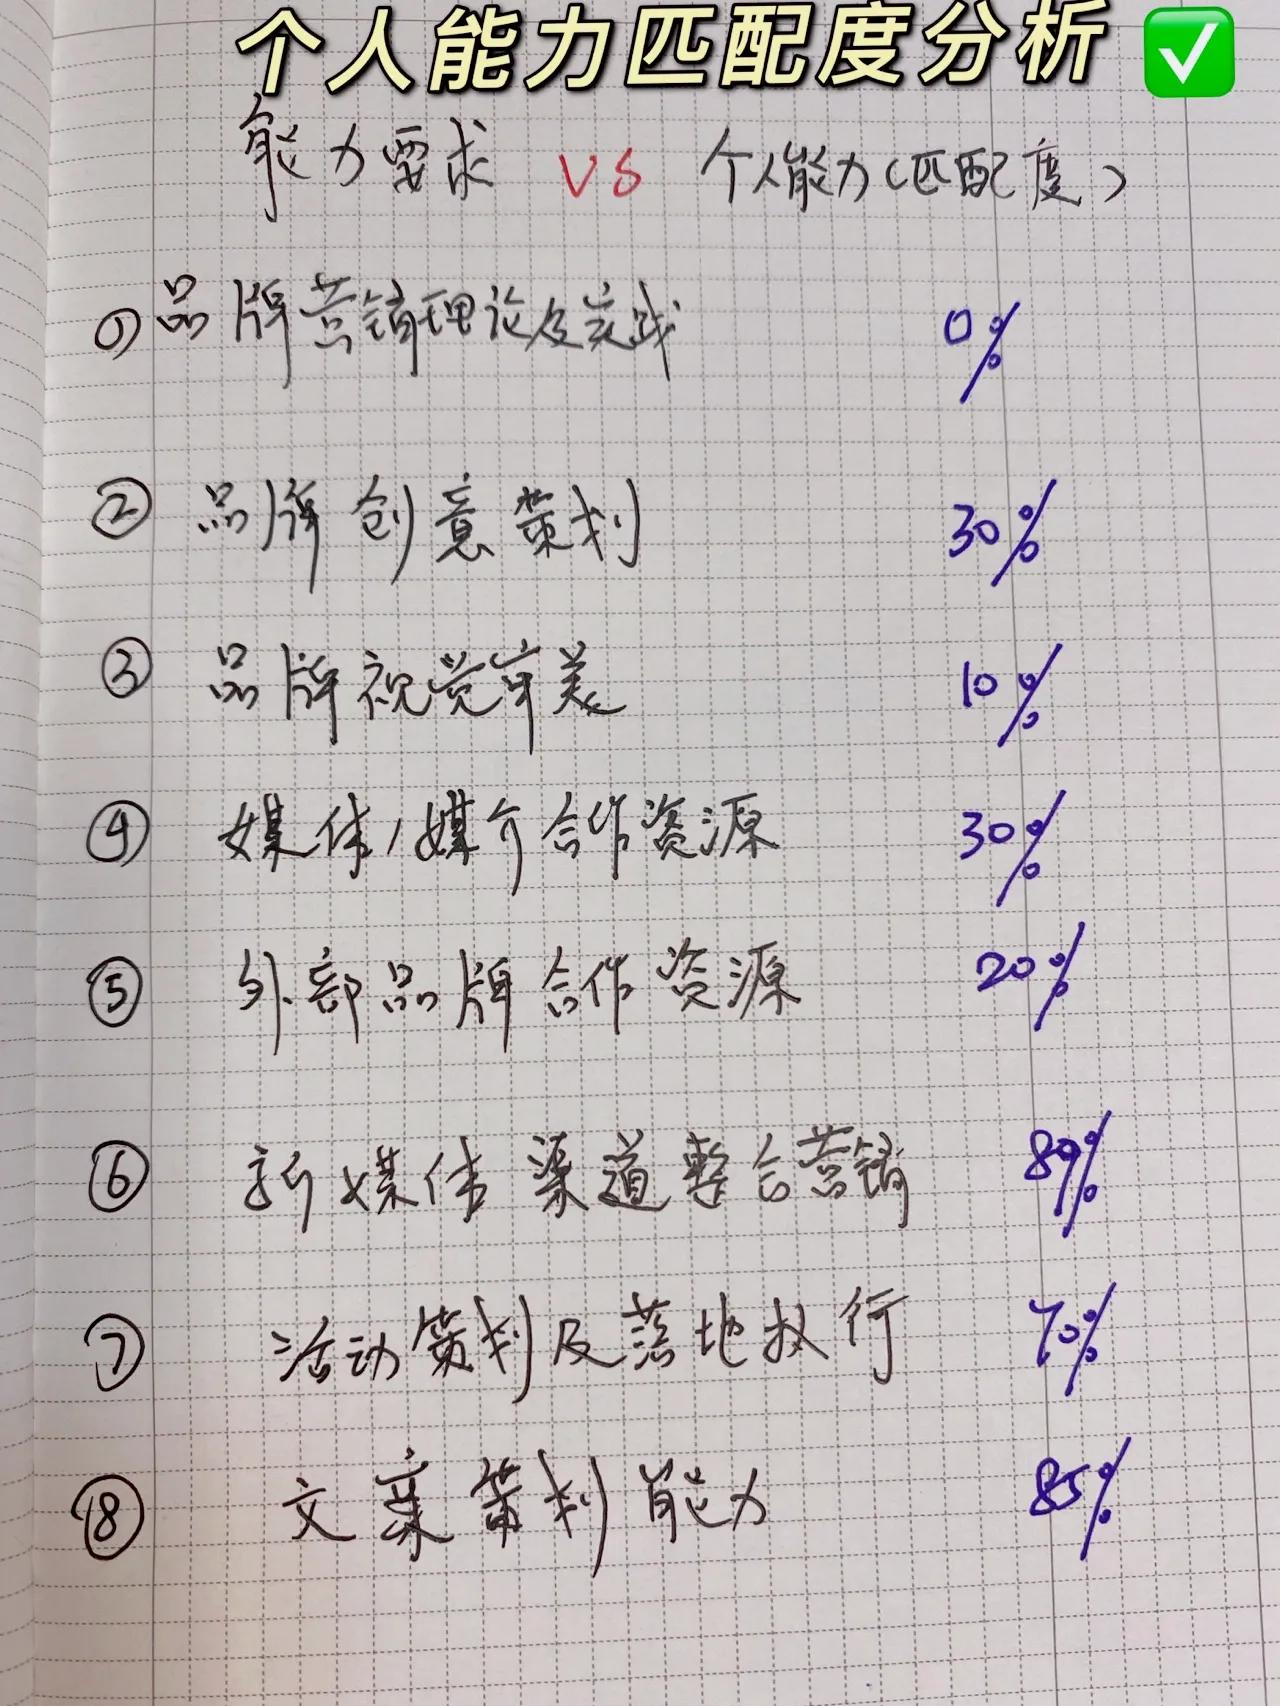 个人能力匹配度分析
能力要求 VS 个人能力(匹配度)
① 品牌营销理论及实践 0%
② 品牌创意策划 30%
③ 品牌视觉审美 10%
④ 媒体/媒介合作资源 30%
⑤ 外部品牌合作资源 20%
⑥ 新媒体渠道整合营销 89%
⑦ 活动策划及落地执行 70%
⑧ 文案策划能力 85%